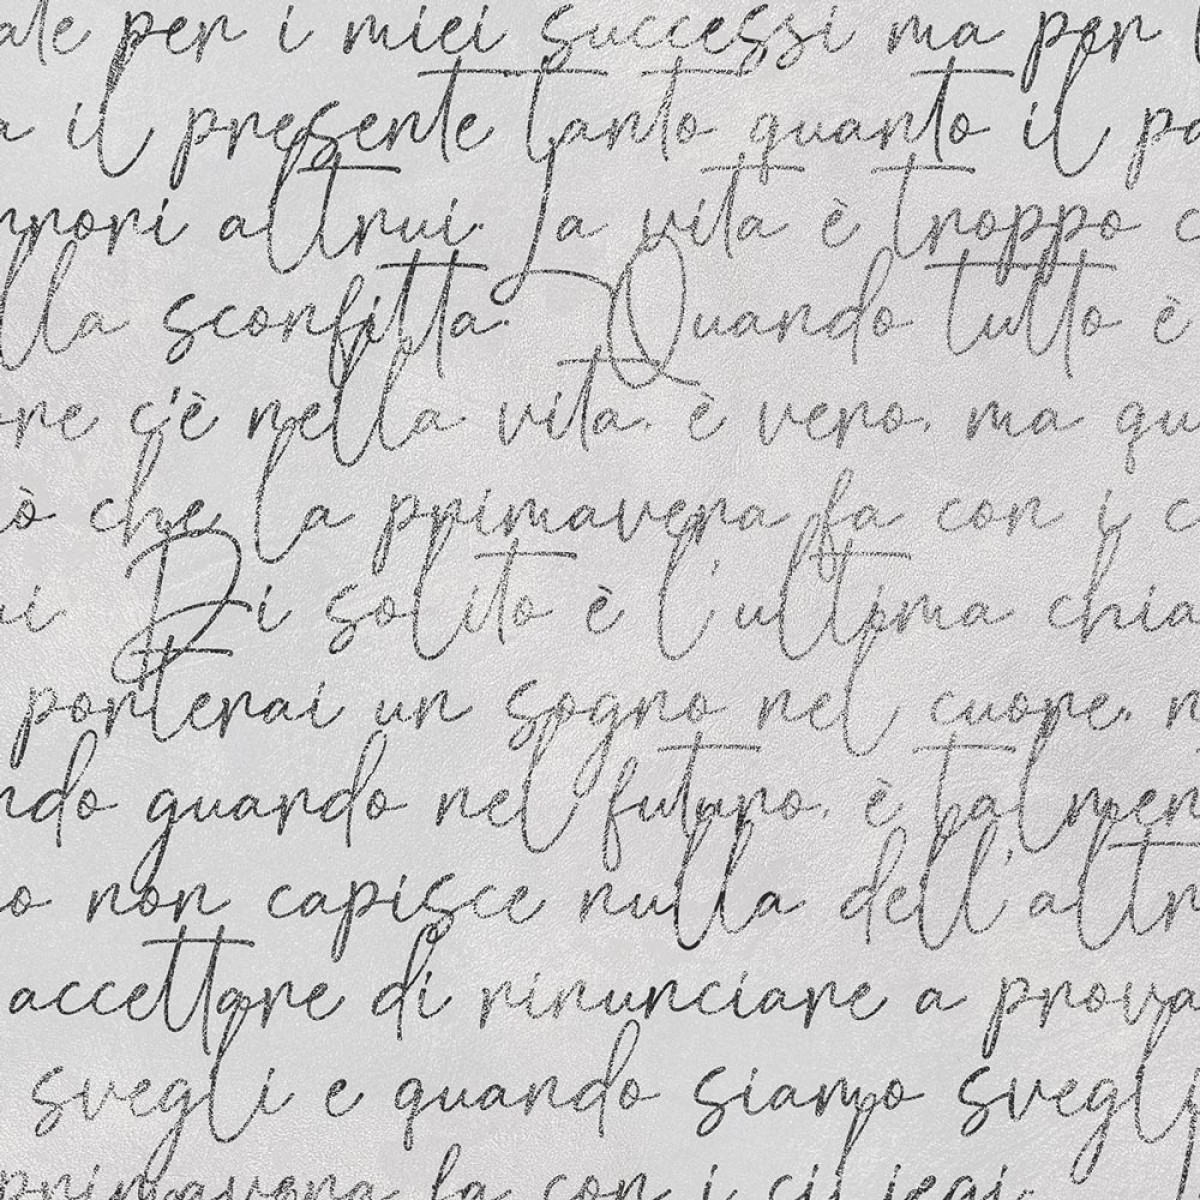 ale per i miei successi ma per l
a il presente tanto quanto il pa
rrori altrui. La vita è troppo c
lla sconfitta. Quando tutto è
ore c'è nella vita, è vero, ma qu
ò che la primavera fa con i c
ui Di solito è l'ultima chia
porterai un sogno nel cuore, n
ndo guardo nel futuro, è talmen
o non capisce nulla dell'altr
accettare di rinunciare a prova
svegli e quando siamo svegl
primavera fa con i ciliegi.